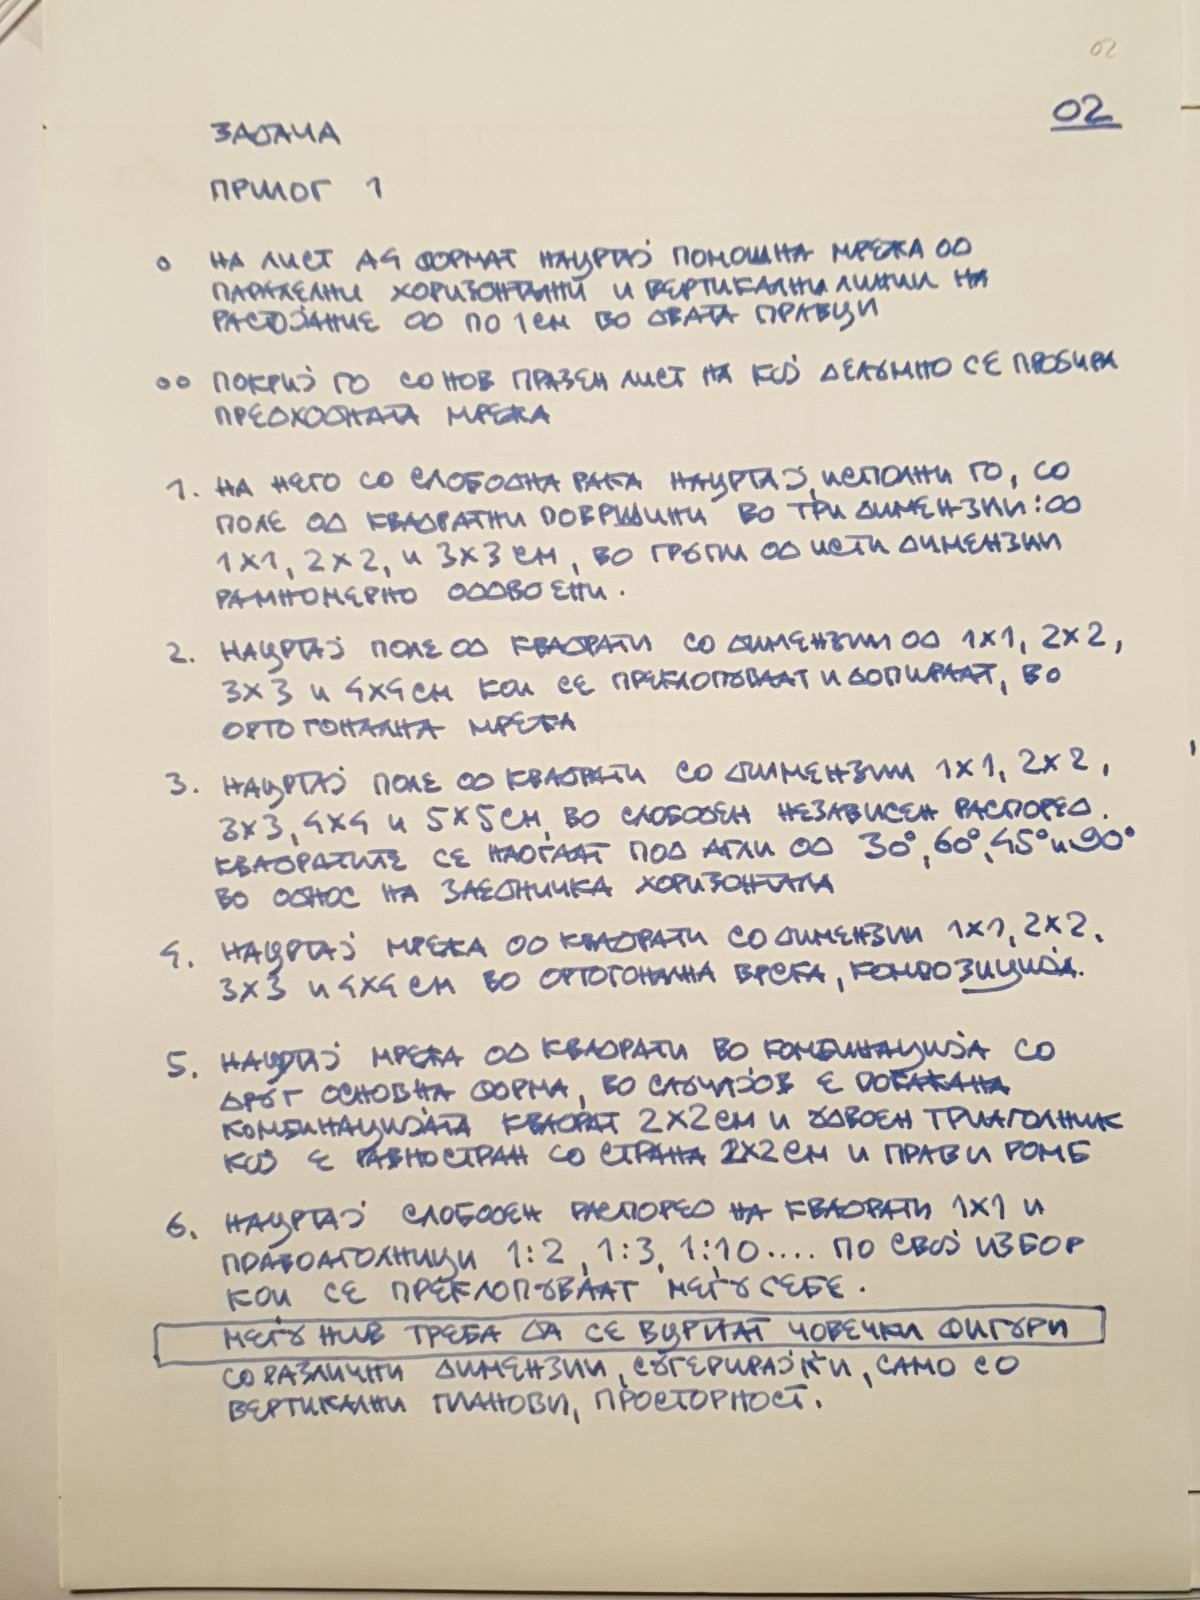 02
02
ЗАДАЧА
ПРИЛОГ 1
о НА ЛИСТ А4 ФОРМАТ НАЦРТАЈ ПОМОШНА МРЕЖА ОД
ПАРАЛЕЛНИ ХОРИЗОНТАЛНИ И ВЕРТИКАЛНИ ЛИНИИ НА
РАСТОЈАНИЕ ОД ПО 1СМ ВО ДВАТА ПРАВЦИ
оо ПОКРИЈ ГО СО НОВ ПРАЗЕН ЛИСТ НА КОЈ ДЕЛУМНО СЕ ПРОБИРА
ПРЕДХОДНАТА МРЕЖА
1. НА НЕГО СО СЛОБОДНА РАКА НАЦРТАЈ, ИСПОЛНИ ГО, СО
ПОЛЕ ОД КВАДРАТНИ ПОВРШИНИ ВО ТРИ ДИМЕНЗИИ: ОД
1X1, 2X2, И 3X3 СМ, ВО ГРУПИ ОД ИСТИ ДИМЕНЗИИ
РАМНОМЕРНО ОДДВОЕНИ.
2. НАЦРТАЈ ПОЛЕ ОД КВАДРАТИ СО ДИМЕНЗИИ ОД 1X1, 2X2,
3X3 И 4X4 СМ КОИ СЕ ПРЕКЛОПУВААТ И ДОПИРААТ, ВО
ОРТОГОНАЛНА МРЕЖА
3. НАЦРТАЈ ПОЛЕ ОД КВАДРАТИ СО ДИМЕНЗИИ 1X1, 2X2,
3X3, 4X4 И 5X5СМ, ВО СЛОБОДЕН НЕЗАВИСЕН РАСПОРЕД.
КВАДРАТИТЕ СЕ НАОЃААТ ПОД АГЛИ ОД 30°, 60°, 45° И 90°
ВО ОДНОС НА ЗАЕДНИЧКА ХОРИЗОНТАЛА
4. НАЦРТАЈ МРЕЖА ОД КВАДРАТИ СО ДИМЕНЗИИ 1X1, 2X2,
3X3 И 4X4 СМ ВО ОРТОГОНАЛНА ВРСКА, КОМПОЗИЦИЈА.
5. НАЦРТАЈ МРЕЖА ОД КВАДРАТИ ВО КОМБИНАЦИЈА СО
ДРУГ ОСНОВНА ФОРМА, ВО СЛУЧАЈОВ Е ПОКАЖАНА
КОМБИНАЦИЈАТА КВАДРАТ 2X2 СМ И УДВОЕН ТРИАГОЛНИК
КОЈ Е РАВНОСТРАН СО СТРАНА 2X2 СМ И ПРАВИ РОМБ
6. НАЦРТАЈ СЛОБОДЕН РАСПОРЕД НА КВАДРАТИ 1X1 И
ПРАВОАГОЛНИЦИ 1:2, 1:3, 1:10.... ПО СВОЈ ИЗБОР
КОИ СЕ ПРЕКЛОПУВААТ МЕЃУ СЕБЕ.
МЕЃУ НИВ ТРЕБА ДА СЕ ВЦРТАТ ЧОВЕЧКИ ФИГУРИ
СО РАЗЛИЧНИ ДИМЕНЗИИ, СУГЕРИРАЈЌИ, САМО СО
ВЕРТИКАЛНИ ПЛАНОВИ, ПРОСТОРНОСТ.